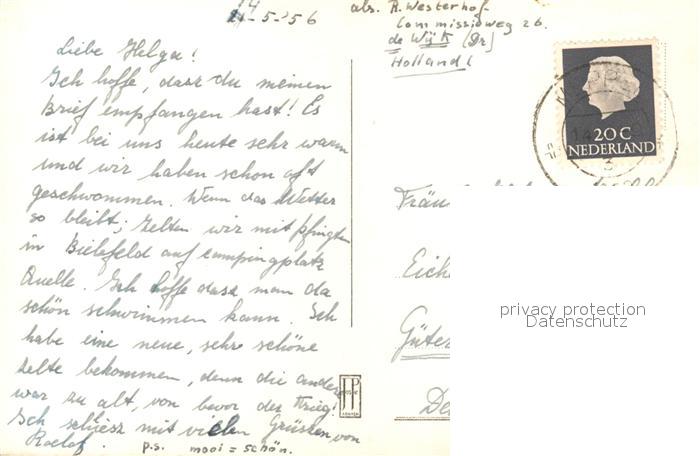 14-5-'56
Liebe Helga!
Ich hoffe, dasz du meinen
Brief empfangen hast! Es
ist bei uns heute sehr warm
und wir haben schon oft
geschwommen. Wenn das Wetter
so bleibt; Zelten wir mit Pfingsten
in Bielefeld auf campingplatz
Quelle. Ich hoffe dasz man da
schön schwimmen kann. Ich
habe eine neue, sehr schöne
zelte bekommen, denn die andere
war zu alt, von bevor der Krieg!
Ich schliesz mit vielen Grüszen von
Roelof.
p.s. mooi = schön.
abs. R. Westerhof
Commissieweg 26.
de Wijk (Dr)
Holland!
20 C
NEDERLAND
14
3
Fräu
Eich
Güter
De
JP
privacy protection
Datenschutz